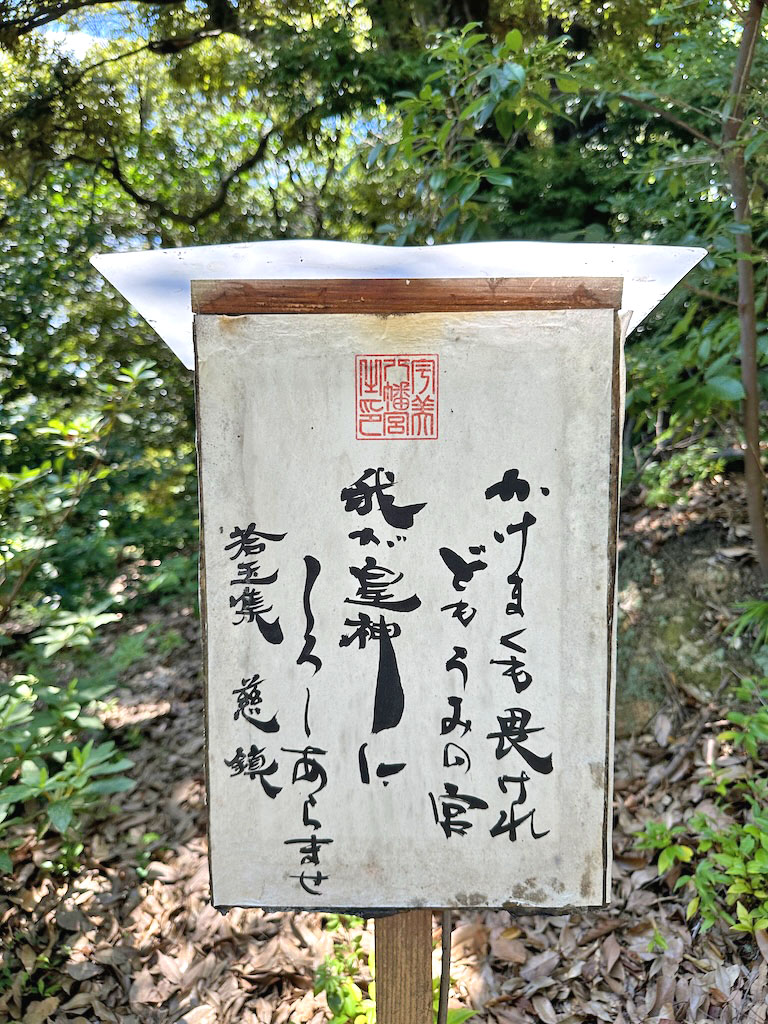 宇美
八幡宮
之印
かけまくも畏けれ
どもうみの宮
我が皇神に
しるしあらませ
若玉集 慈鎮